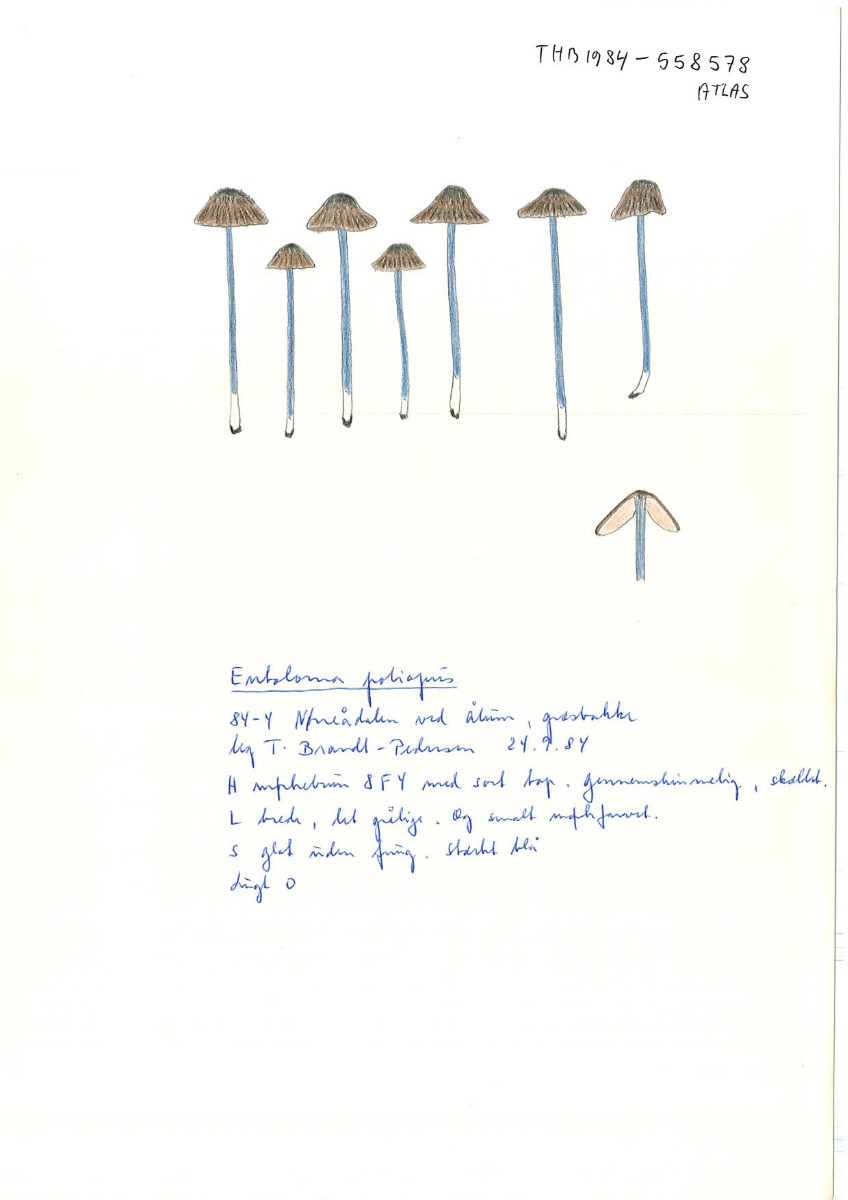 THB1984-558578
ATLAS
Entoloma poliopus
84-4 Nørreådalen ved Ålum, græsbakke
leg T. Brandt-Pedersen 24.9.84
H mørkebrun 8F4 med sort top. gennemskinnelig, skællet.
L brede, let grålige. Æg smalt mørkfarvet.
S glat uden fnug. stærkt blå
Lugt 0